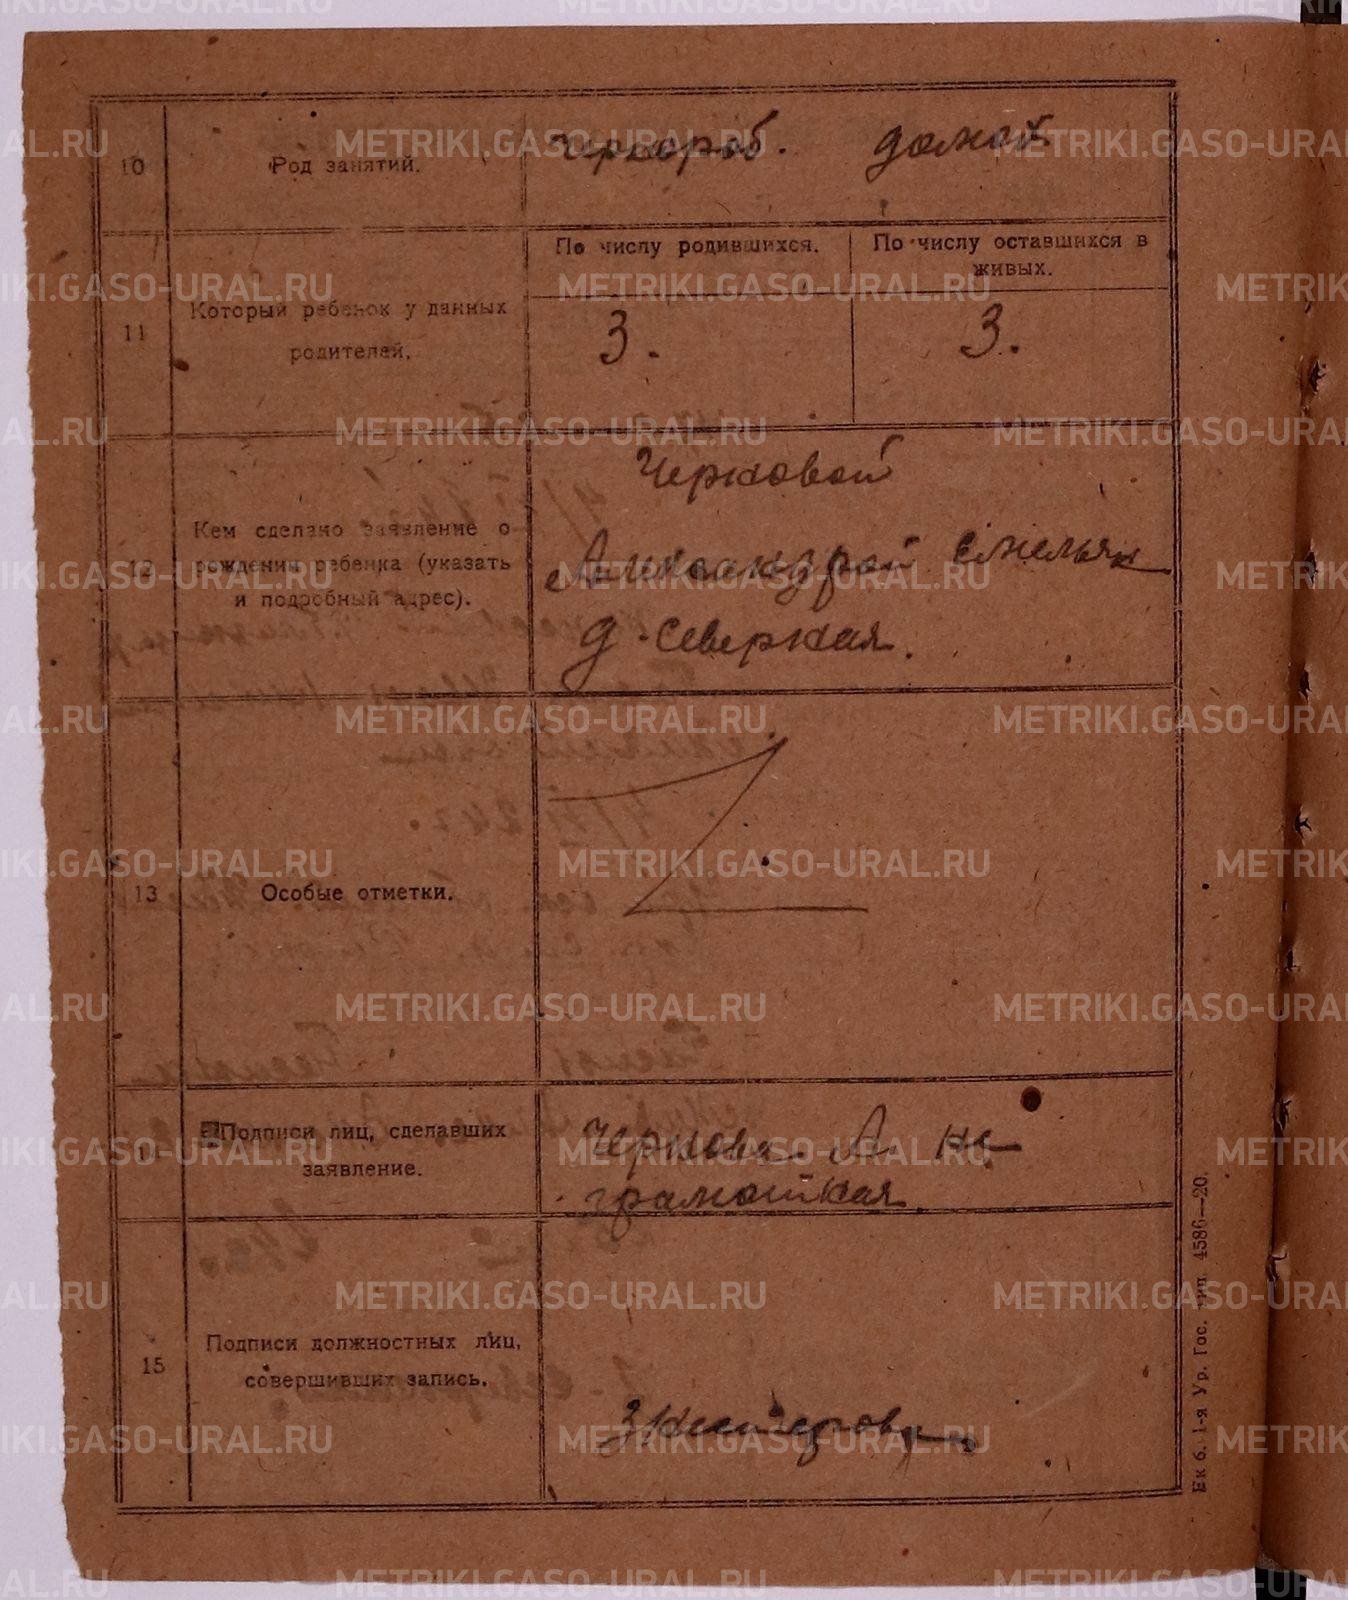 10
Род занятий.
Чернораб. домаш
11
Который ребенок у данных
родителей.
По числу родившихся.
По числу оставшихся в
живых.
3.
3.
12
Кем сделано заявление о
рождении ребенка (указать
и подробный адрес).
Черковой
Александрой Емельян
д. Северная.
13
Особые отметки.
Подписи лиц, сделавших
заявление.
Черкова А. не
грамотная
15
Подписи должностных лиц,
совершивших запись.
Ек б. 1-я Ур. Гос. тип. 4586—20.
METRIKI.GASO-URAL.RU